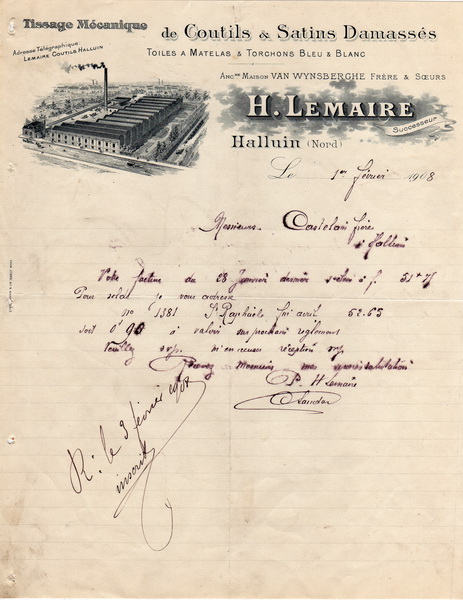 Tissage Mécanique
de Coutils & Satins Damassés
Adresse Télégraphique:
LEMAIRE COUTILS HALLUIN
TOILES A MATELAS & TORCHONS BLEU & BLANC
ANCNNE MAISON VAN WYNSBERGHE FRÈRE & SŒURS
H. LEMAIRE
Successeur
Halluin (Nord)
Le 1er février 1908
Messieurs Castelain frère
à Halluin
Votre facture du 28 Janvier dernier f. 51
Pour solde je vous adresse
no 1381 St Raphaële fin avril 52.65
soit 0 90 à valoir sur prochain règlement
Veuillez svp. m'en accuser réception
Recevez Messieurs mes salutations
P. H Lemaire
R: le 3 février 1908
inscrit